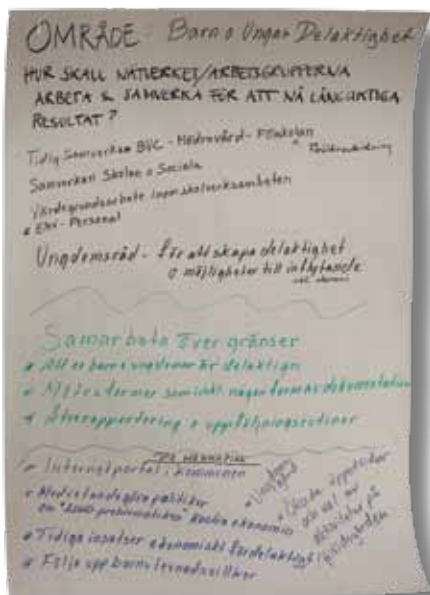 OMRÅDE: Barn o Ungas Delaktighet
HUR SKALL NÄTVERKET/ARBETSGRUPPERNA
ARBETA & SAMVERKA FÖR ATT NÅ LÅNGSIKTIGA
RESULTAT?
Tidig Samverkan BVC - Mödravård - Förskolan
Samverkan Skolan o Sociala
Värdegrundsarbete inom skolverksamheten
Elev - Personal
Ungdomsråd - för att skapa delaktighet
o möjligheter till inflytande
Samarbete över gränser
Att se barn o ungdomar är delaktiga
Mötesformer som inkl. någon form av dokumentation
Återrapportering o uppföljningsrutiner
Internetportal i kommunen
Medvetandegöra politiker
om kostn ekonomi
Tidiga insatser ekonomiskt fördelaktigt
Följa upp barns levnadsvillkor
Ökade öppettider
och val av
aktiviteter på
fritidsgården